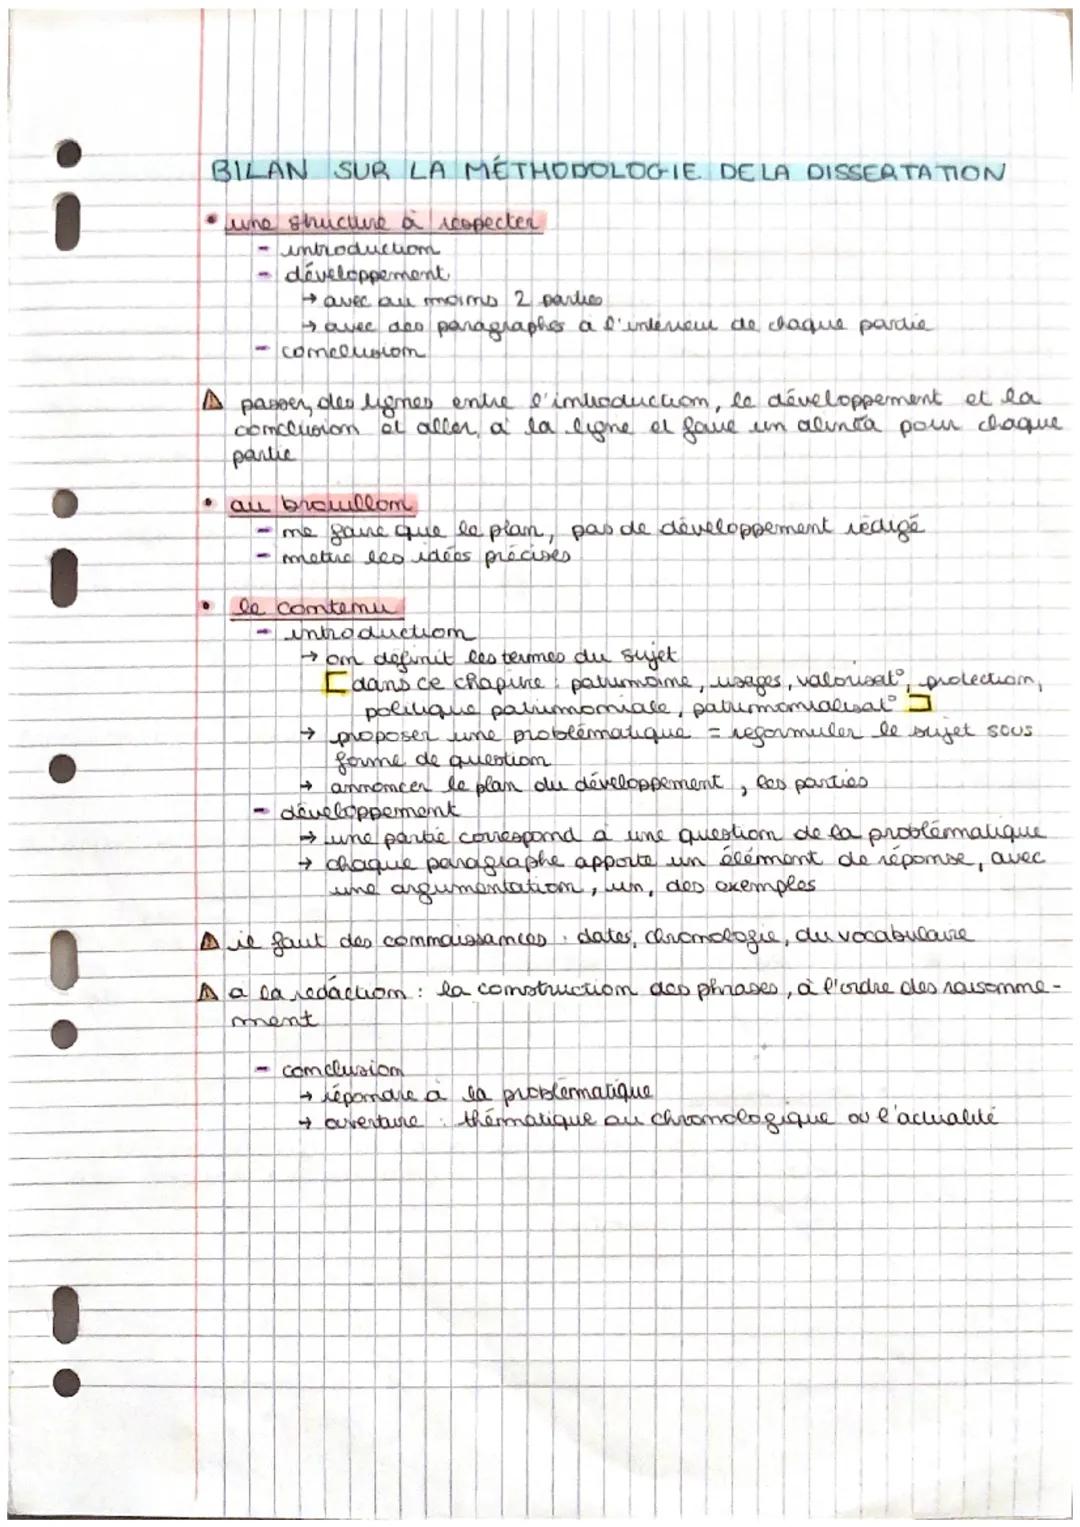 BILAN SUR LA MÉTHODOLOGIE DE LA DISSERTATION
• une structure à respecter
- introduction
- développement
→ avec au moins 2 parties
→ avec des paragraphes à l'intérieur de chaque partie
- conclusion
⚠ passer des lignes entre l'introduction, le développement et la
conclusion et aller à la ligne et faire un alinéa pour chaque
partie
• au brouillon
- ne faire que le plan, pas de développement rédigé
- mettre les idées précises
• le contenu
- introduction
→ on définit les termes du sujet
[dans ce chapitre : patrimoine, usages, valorisat°, protection,
politique patrimoniale, patrimonialisat°]
→ proposer une problématique = reformuler le sujet sous
forme de question
→ annoncer le plan du développement, les parties
- développement
→ une partie correspond à une question de la problématique
→ chaque paragraphe apporte un élément de réponse, avec
une argumentation, un, des exemples
⚠ il faut des connaissances : dates, chronologie, du vocabulaire
⚠ a la rédaction : la construction des phrases, à l'ordre des raisonne-
ment
- conclusion
→ répondre à la problématique
→ ouverture : thématique ou chronologique ou l'actualité